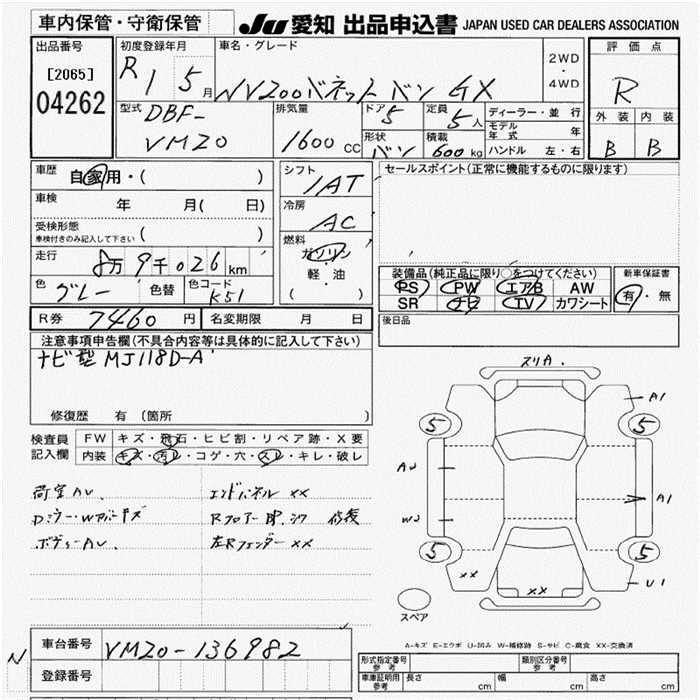 車内保管・守衛保管
JU 愛知 出品申込書 JAPAN USED CAR DEALERS ASSOCIATION
出品番号
[2065]
04262
初度登録年月
R1 5月
車名・グレード
NV200バネットバン GX
2WD
・
4WD
評価点
R
外装 内装
B B
型式
DBF-
VM20
排気量
1600 CC
ドア
5
定員
5人
形状
バン
積載
600kg
ディーラー・並行
モデル年式 年
ハンドル 左・右
車歴
自家用・( )
車検
年 月( 日)
受検形態
車検付きのみ記入して下さい ( )
走行
8万9千026km
色
グレー
色替
色コード
K51
シフト
IAT
冷房
AC
燃料
ガソリン
軽・油
( )
セールスポイント(正常に機能するものに限ります)
装備品(純正品に限り○をつけてください)
PS PW エアB AW
SR ナビ TV カワシート
新車保証書
有・無
後日品
R券 7460円 名変期限 月 日
注意事項申告欄(不具合内容等は具体的に記入して下さい)
ナビ型 MJ118D-A
修復歴 有(箇所
検査員記入欄
FW キズ・飛石・ヒビ割・リペア跡・X要
内装 キズ・汚レ・コゲ・穴・スレ・キレ・破レ
荷室AU、 エンドパネル XX
Dミラー・Wアバーキズ Rフロアー 中シワ 修復
ボディーAU、 左Rフェンダー XX
スリA.
5 5 A1
AU
A1
W2
5 5
XX XX U1
スペア
A-キズ E-エクボ U-凹み W-補修跡 S-サビ C-腐食 XX-交換済
N
車台番号 VM20-136982
登録番号
形式指定番号 参考
類別区分番号 参考
車庫証明用 参考 長さ cm 幅 cm 高さ cm